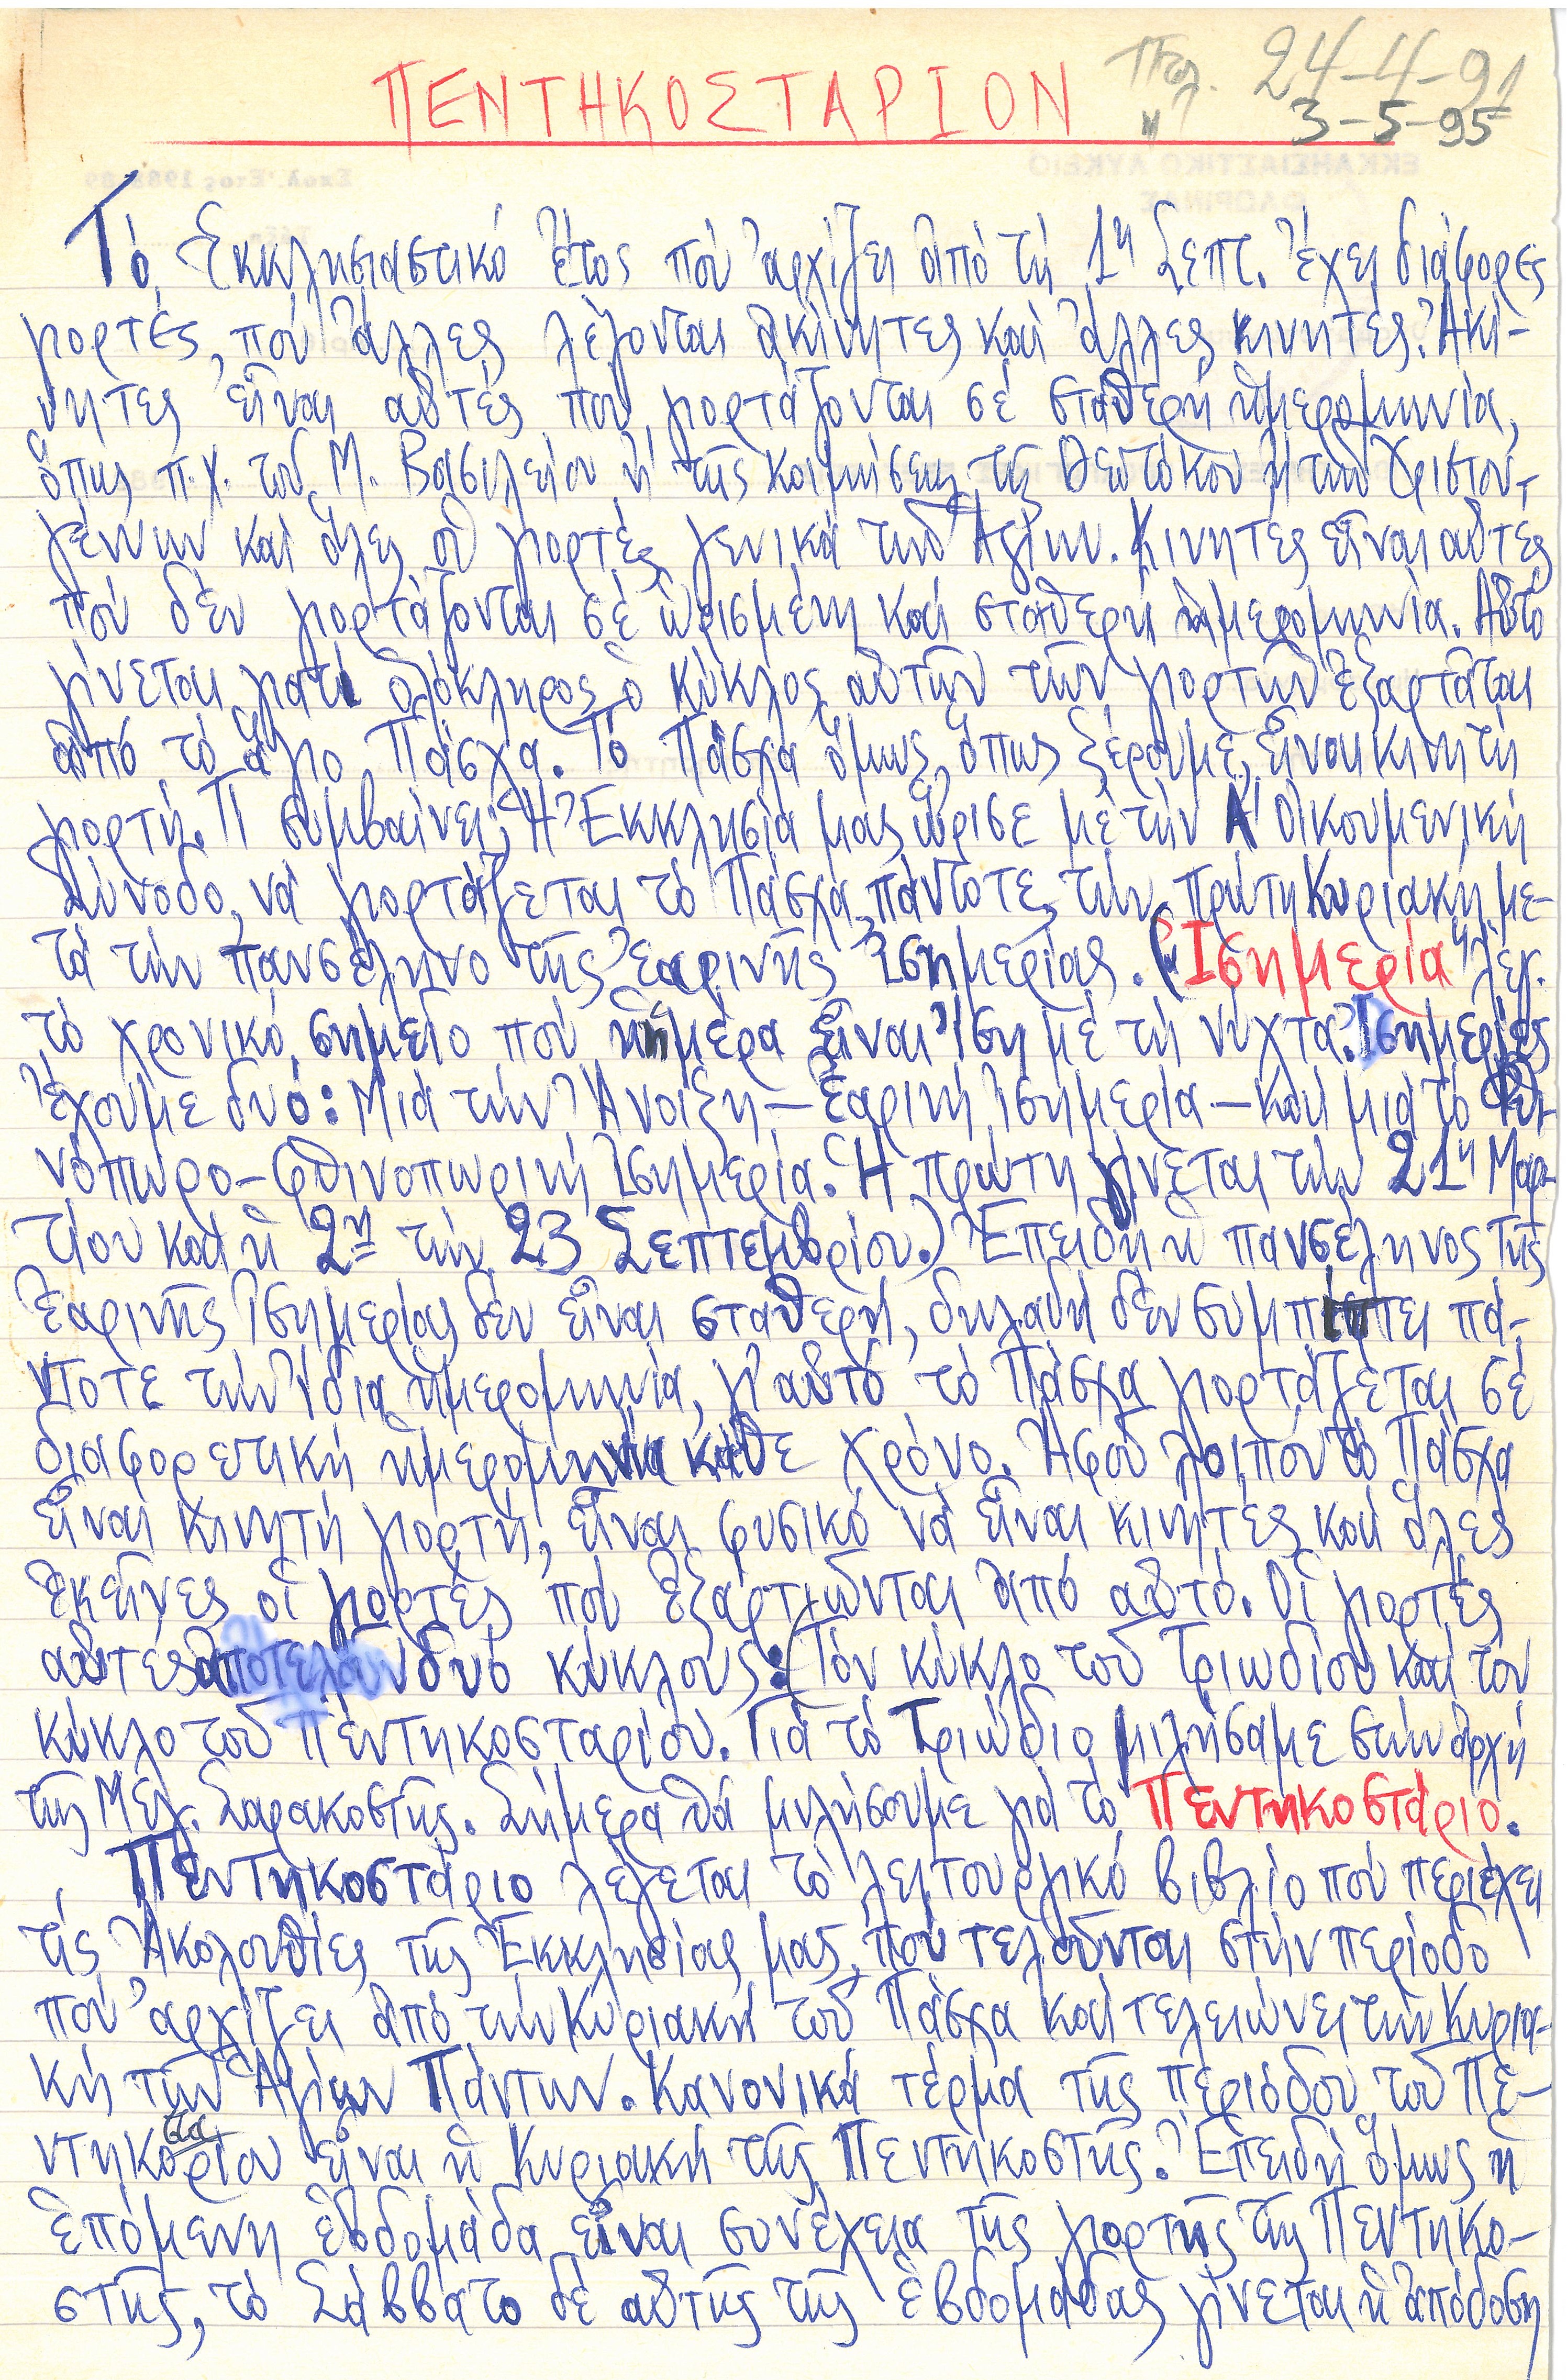 ΠΕΝΤΗΚΟΣΤΑΡΙΟΝ
24-4-91
" 3-5-95
Τό Ἐκκλησιαστικό ἔτος πού ἀρχίζει ἀπό τή 1η Σεπτ. ἔχει διάφορες
γιορτές, πού ἄλλες λέγονται ἀκίνητες καί ἄλλες κινητές. Ἀκί-
νητες εἶναι αὐτές πού γιορτάζονται σέ σταθερή ἡμερομηνία,
ὅπως π.χ. τοῦ Μ. Βασιλείου ἤ τῆς Κοιμήσεως τῆς Θεοτόκου ἤ τῶν Χριστου-
γέννων καί ὅλες οἱ γιορτές γενικά τῶν Ἁγίων. Κινητές εἶναι αὐτές
πού δέν γιορτάζονται σέ ὡρισμένη καί σταθερή ἡμερομηνία. Αὐτό
γίνεται γιατί ὁλόκληρος ὁ κύκλος αὐτῶν τῶν γιορτῶν ἐξαρτᾶται
ἀπό τό ἅγιο Πάσχα. Τό Πάσχα ὅμως, ὅπως ξέρουμε, εἶναι κινητή
γιορτή. Τί συμβαίνει; Ἡ Ἐκκλησία μας ὥρισε μέ τήν Α' Οἰκουμενική
Σύνοδο, νά γιορτάζεται τό Πάσχα πάντοτε, τήν πρώτη Κυριακή με-
τά τήν πανσέληνο τῆς ἐαρινῆς Ἰσημερίας. ("Ἰσημερία" λέγ.
τό χρονικό σημεῖο πού ἡ ἡμέρα εἶναι ἴση μέ τή νύχτα. Ἰσημερίες
ἔχουμε δυό: Μιά τήν Ἄνοιξη - Ἐαρινή Ἰσημερία - καί μιά τό Φθι-
νόπωρο - Φθινοπωρινή Ἰσημερία. Ἡ πρώτη γίνεται τήν 21η Μαρ-
τίου καί ἡ 2η τήν 23 Σεπτεμβρίου.) Ἐπειδή ἡ πανσέληνος τῆς
Ἐαρινῆς Ἰσημερίας δέν εἶναι σταθερή, δηλαδή δέν συμπίπτει πά-
ντοτε τήν ἴδια ἡμερομηνία, γι' αὐτό τό Πάσχα γιορτάζεται σέ
διαφορετική ἡμερομηνία κάθε χρόνο. Ἀφοῦ λοιπόν τό Πάσχα
εἶναι κινητή γιορτή, εἶναι φυσικό νά εἶναι κινητές καί ὅλες
ἐκεῖνες οἱ γιορτές πού ἐξαρτιῶνται ἀπό αὐτό. Οἱ γιορτές
αὐτές ἀποτελοῦν δυό κύκλους: (Τόν κύκλο τοῦ Τριωδίου καί τόν
κύκλο τοῦ Πεντηκοσταρίου. Γιά τό Τριώδιο μιλήσαμε στήν ἀρχή
τῆς Μεγ. Σαρακοστῆς. Σήμερα θά μιλήσουμε γιά τό Πεντηκοστάριο.
Πεντηκοστάριο λέγεται τό λειτουργικό βιβλίο πού περιέχει
τίς Ἀκολουθίες τῆς Ἐκκλησίας μας, πού τελοῦνται στήν περίοδο
πού ἀρχίζει ἀπό τήν Κυριακή τοῦ Πάσχα καί τελειώνει τήν Κυρια-
κή τῶν Ἁγίων Πάντων. Κανονικά τέρμα τῆς περιόδου τοῦ Πε-
ντηκοσταρίου εἶναι ἡ Κυριακή τῆς Πεντηκοστῆς. Ἐπειδή ὅμως ἡ
ἑπόμενη ἑβδομάδα εἶναι συνέχεια τῆς γιορτῆς τῆς Πεντηκο-
στῆς, τό Σάββατο δέ αὐτῆς τῆς ἑβδομάδας γίνεται ἡ ἀπόδοση